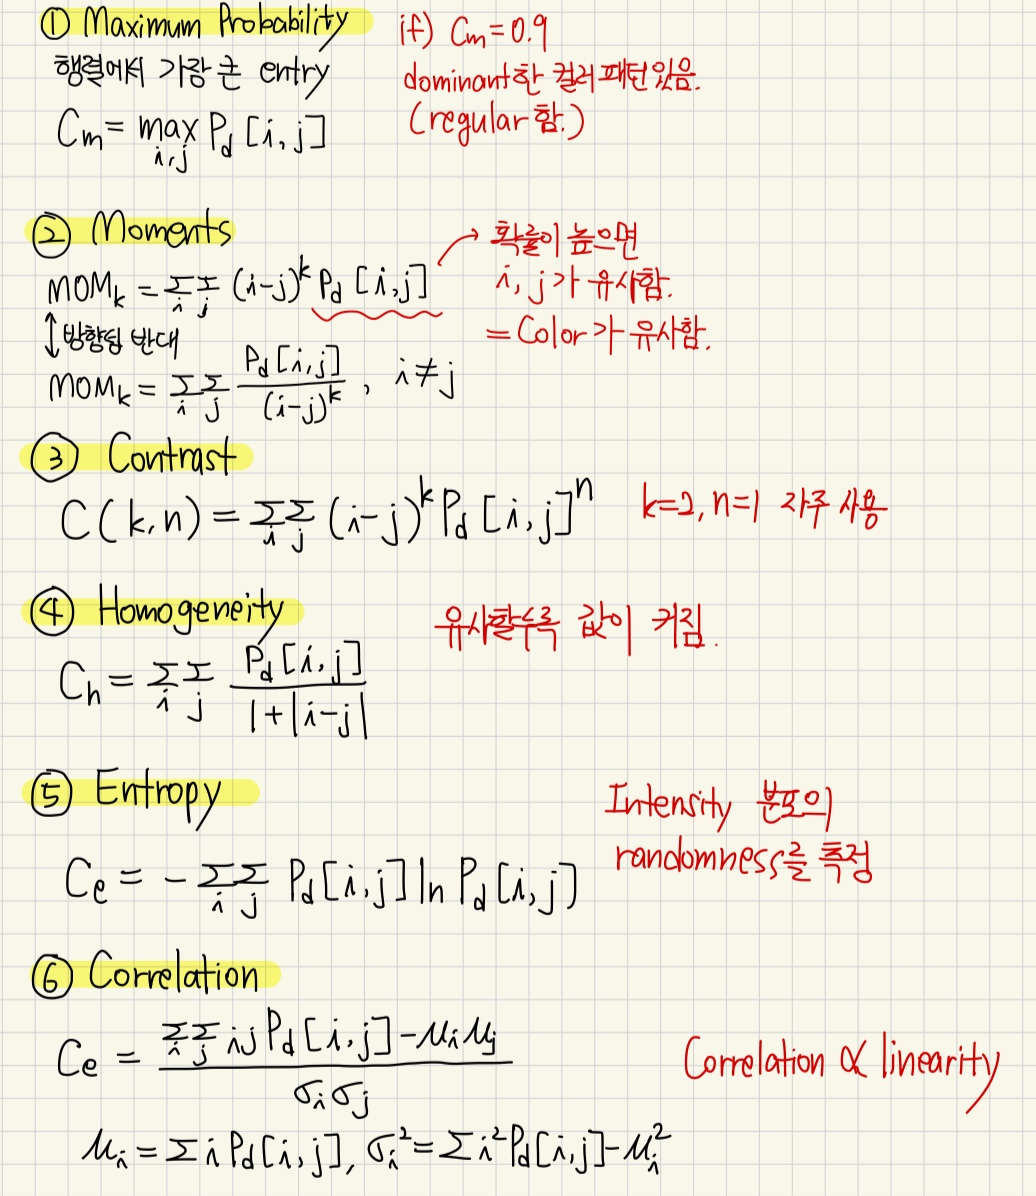 ① Maximum Probability
행렬에서 가장 큰 entry
C_m = max_{i,j} P_d [i, j]
if) C_m = 0.9
dominant한 컬러 패턴있음.
(regular 함.)
② Moments
MOM_k = Σ_i Σ_j (i-j)^k P_d [i,j]
→ 확률이 높으면
i, j가 유사함.
= Color가 유사함.
↕ 방향 반대
MOM_k = Σ_i Σ_j P_d[i,j] / (i-j)^k , i ≠ j
③ Contrast
C(k,n) = Σ_i Σ_j (i-j)^k P_d [i,j]^n
k=2, n=1 자주 사용
④ Homogeneity
C_h = Σ_i Σ_j P_d[i,j] / 1+|i-j|
유사할수록 값이 커짐.
⑤ Entropy
C_e = - Σ_i Σ_j P_d[i,j] ln P_d[i,j]
Intensity 분포의
randomness를 측정
⑥ Correlation
C_e = Σ_i Σ_j ij P_d [i,j] - μ_i μ_j / σ_i σ_j
Correlation ∝ linearity
μ_i = Σ i P_d[i,j], σ_i^2 = Σ i^2 P_d[i,j] - μ_i^2